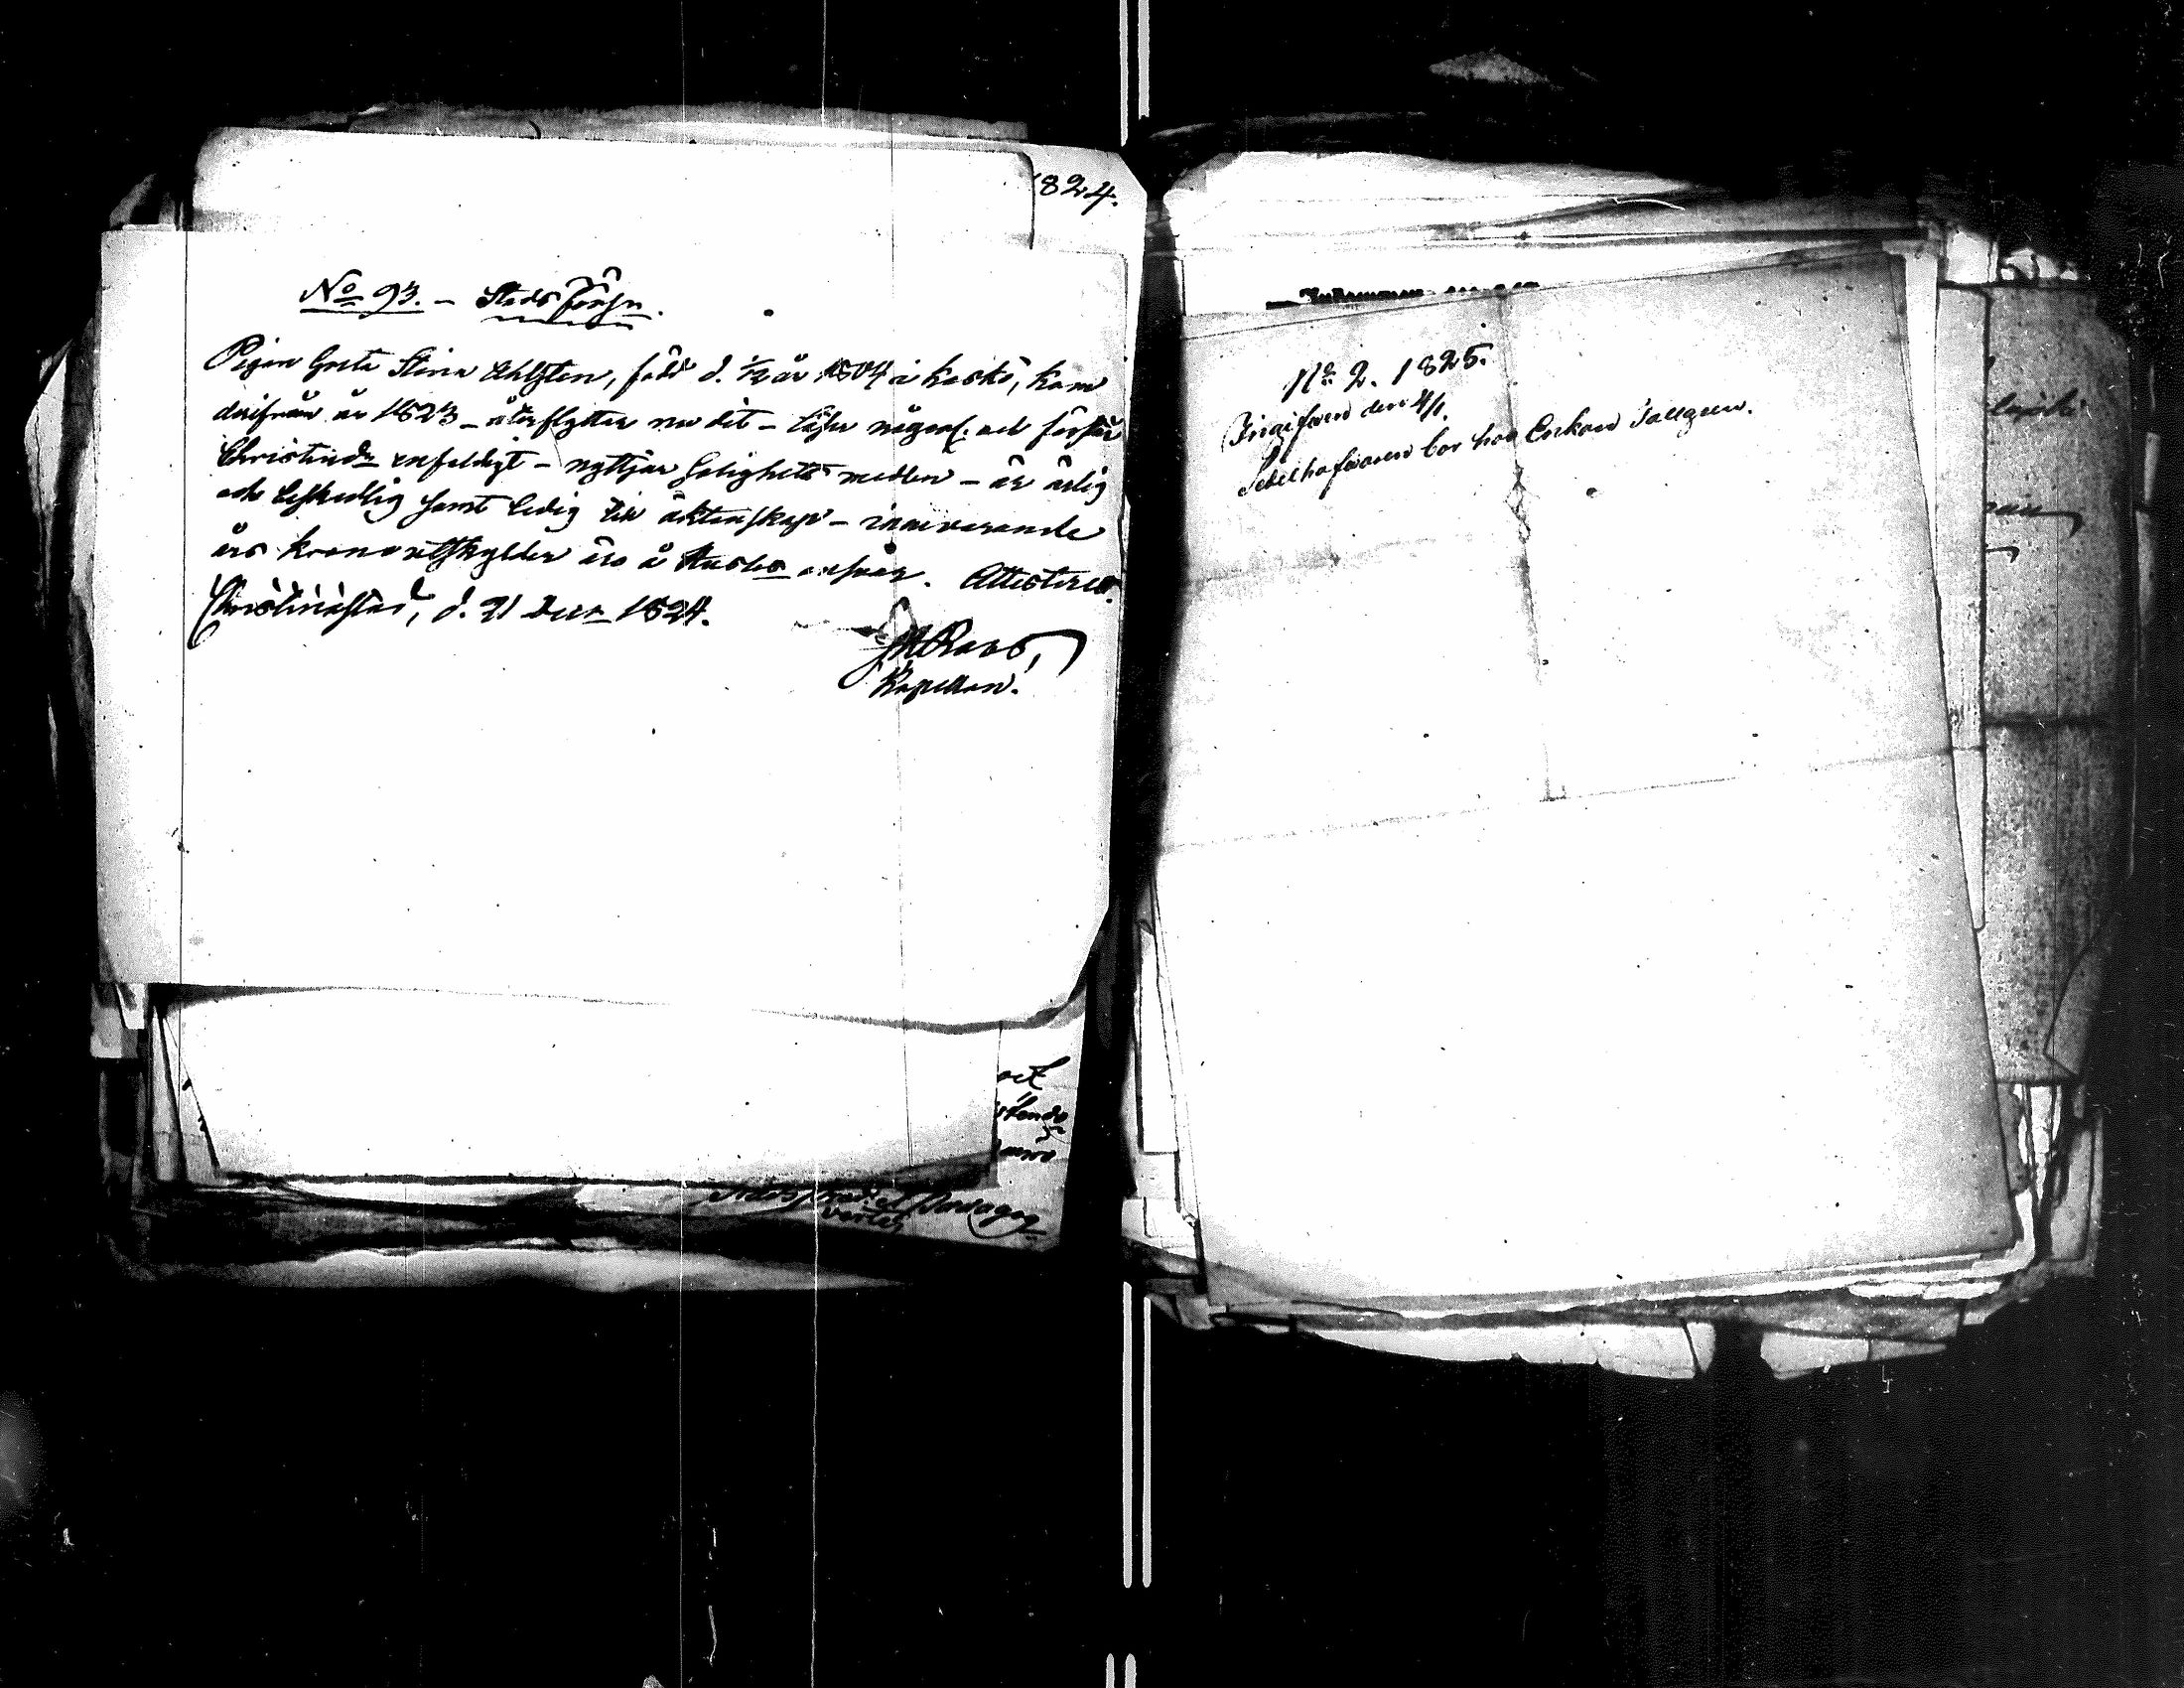 1824.
No 93. - Stads förs.
Pigan Greta Stina Ahlsten, född d. 1/12 år 1804 i Kaskö, kom
derifrån år 1823 - återflyttar nu dit - läser någorl. och förstår
Christend. enfaldigt - nyttjar Salighets medlen - är ärlig
och beskedlig samt ledig till äktenskap - innevarande
års kronoutskylder äro å Kaskö ansvar. Attesteras.
Christinæstad, d. 21 Decr 1824.
Kapellan.
No 2. 1825.
Ingifven den 4/1.
Sedelhafvaren bor hos Enkan Tallgren.